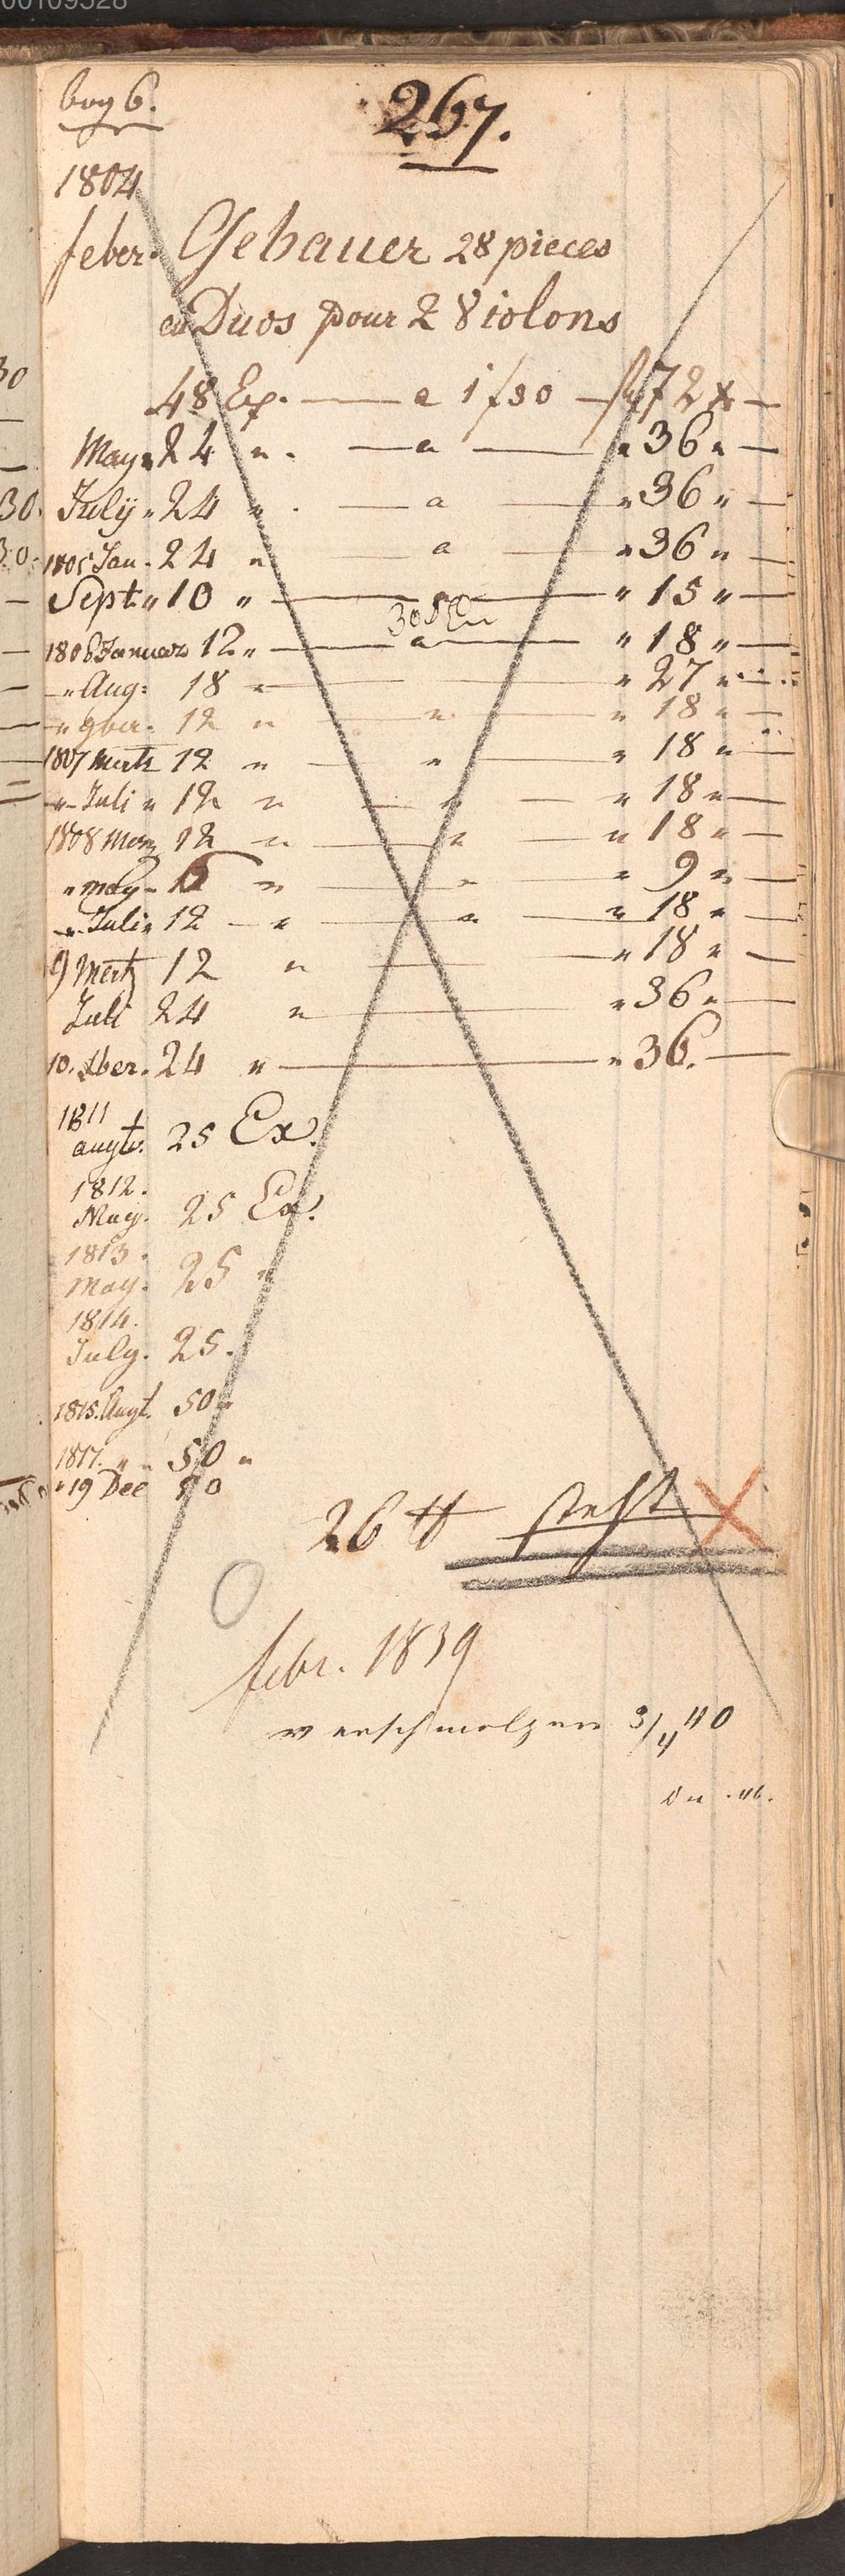 00109528
bog 6.
267.
1804
feber. Gebauer 28 pieces
en Duos pour 2 Violons
48 Ex. — a 1 f 30 — f 72 x —
May " 24 " . — a — " 36 " —
July " 24 " . — a — " 36 " —
1805 Jan. 24 " a — " 36 " —
Sept. " 10 " — " 15 " —
1806 Januar 12 " — a — " 18 " —
" Aug: 18 " — " 27 " —
" 9ber. 12 " " " 18 " —
1807 Mertz 12 " — " — " 18 " —
" Juli " 12 " — " — " 18 " —
1808 Merz 12 " " " 18 " —
" may " 6 " — " — " 9 " —
" Juli " 12 — " — " — " 18 " —
9 Mertz 12 " — " 18 " —
Juli 24 " — " 36 " —
10. xber. 24 " — " 36. —
1811
augt. 25 Ex.
1812.
May. 25 Ex.
1813.
May. 25 "
1814.
July. 25.
1815. Augt. 50 "
1817. " " 50 "
" 19 Dec 50
26 ℔ steht
febr. 1839
verschmolzen 3/4 40